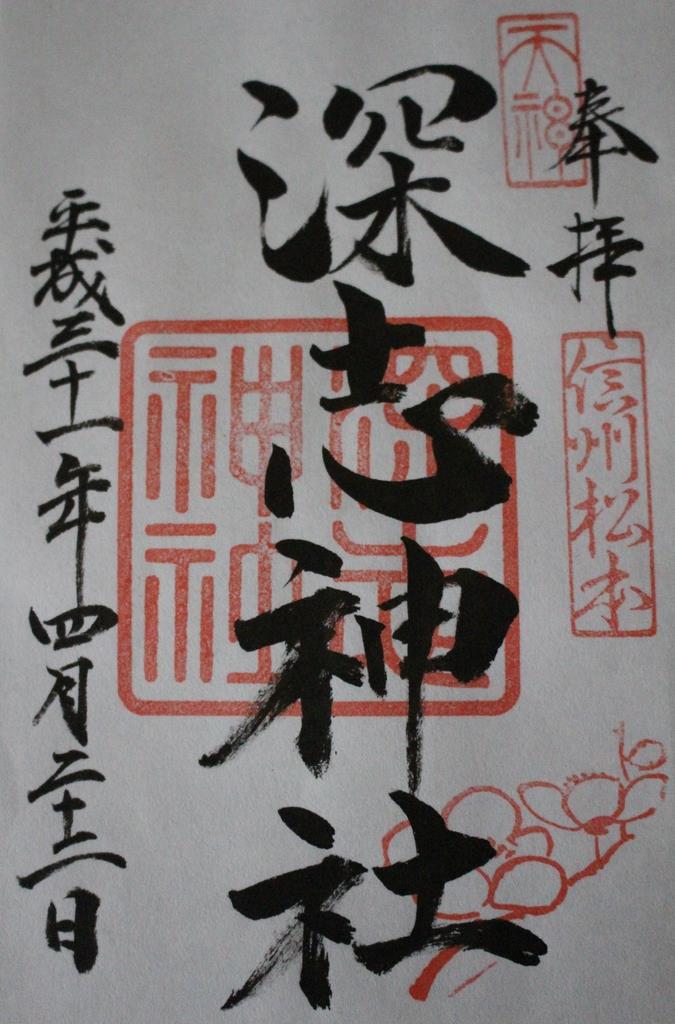 天神
奉拝
信州松本
深志神社
深志神社
平成三十一年四月二十二日